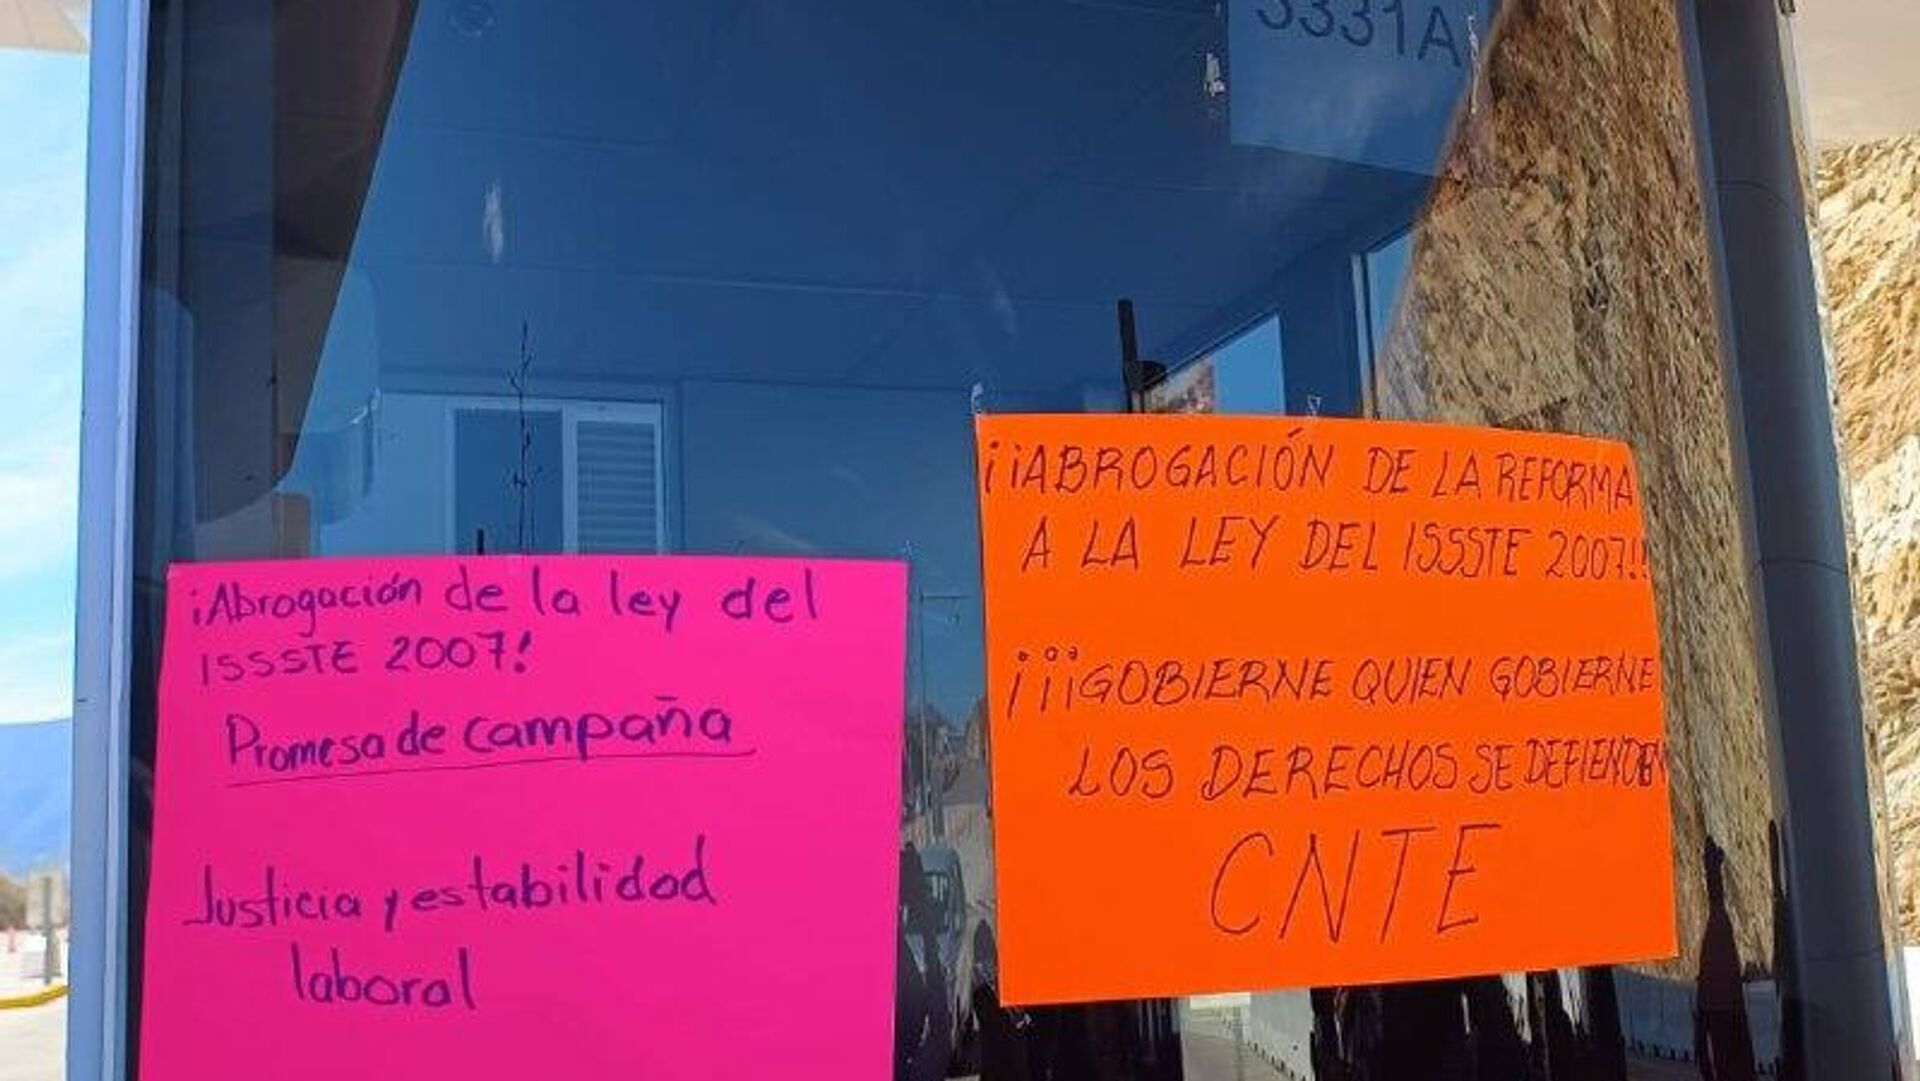 3331A
¡Abrogación de la ley del
ISSSTE 2007!
Promesa de campaña
Justicia y estabilidad
laboral
¡¡ABROGACIÓN DE LA REFORMA
A LA LEY DEL ISSSTE 2007!!
¡¡¡GOBIERNE QUIEN GOBIERNE
LOS DERECHOS SE DEFIENDEN
CNTE